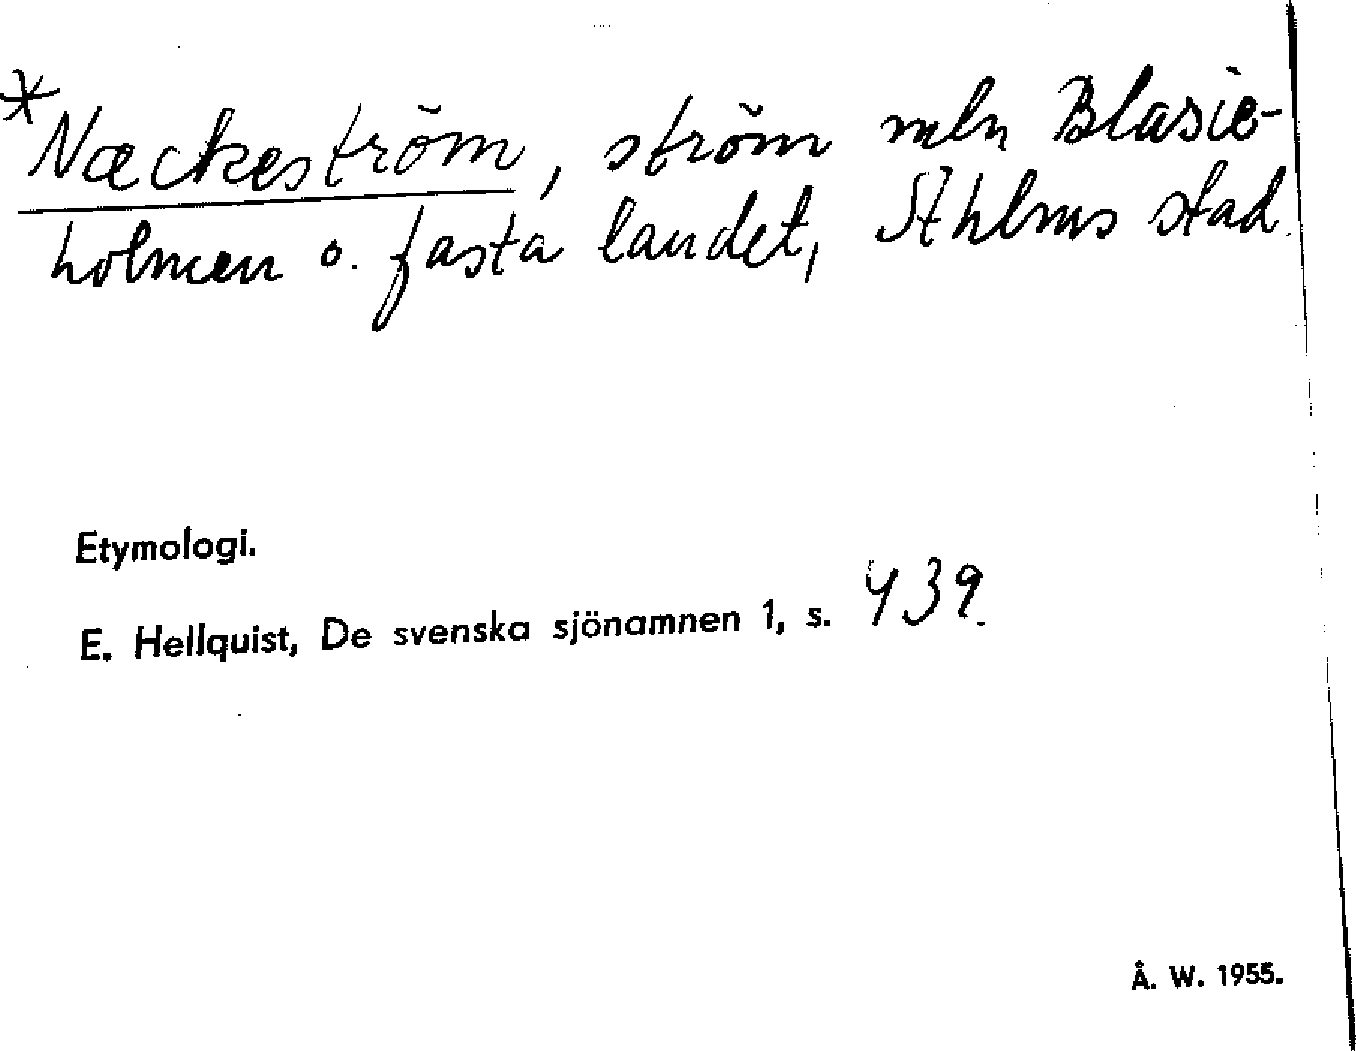 *Næckeström, ström mln Blasie-
holmen o. fasta landet, Sthlms stad.
Etymologi.
E. Hellquist, De svenska sjönamnen 1, s. 439.
Å. W. 1955.